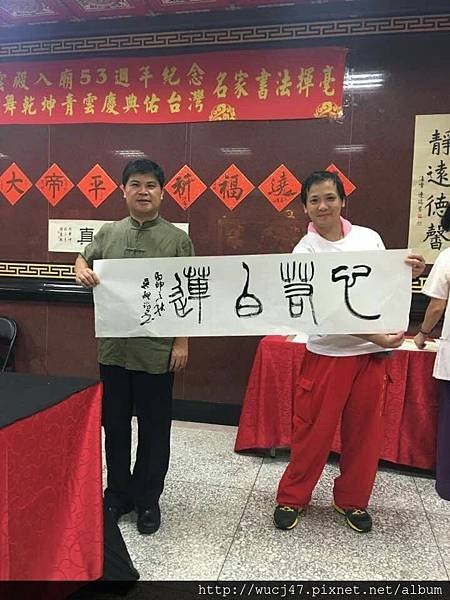 雲殿入廟53週年紀念
舞乾坤青雲慶典佑台灣
名家書法揮毫
大帝平祈福遶
真
靜遠德馨
心若白蓮
http://wucj47.pixnet.net/album